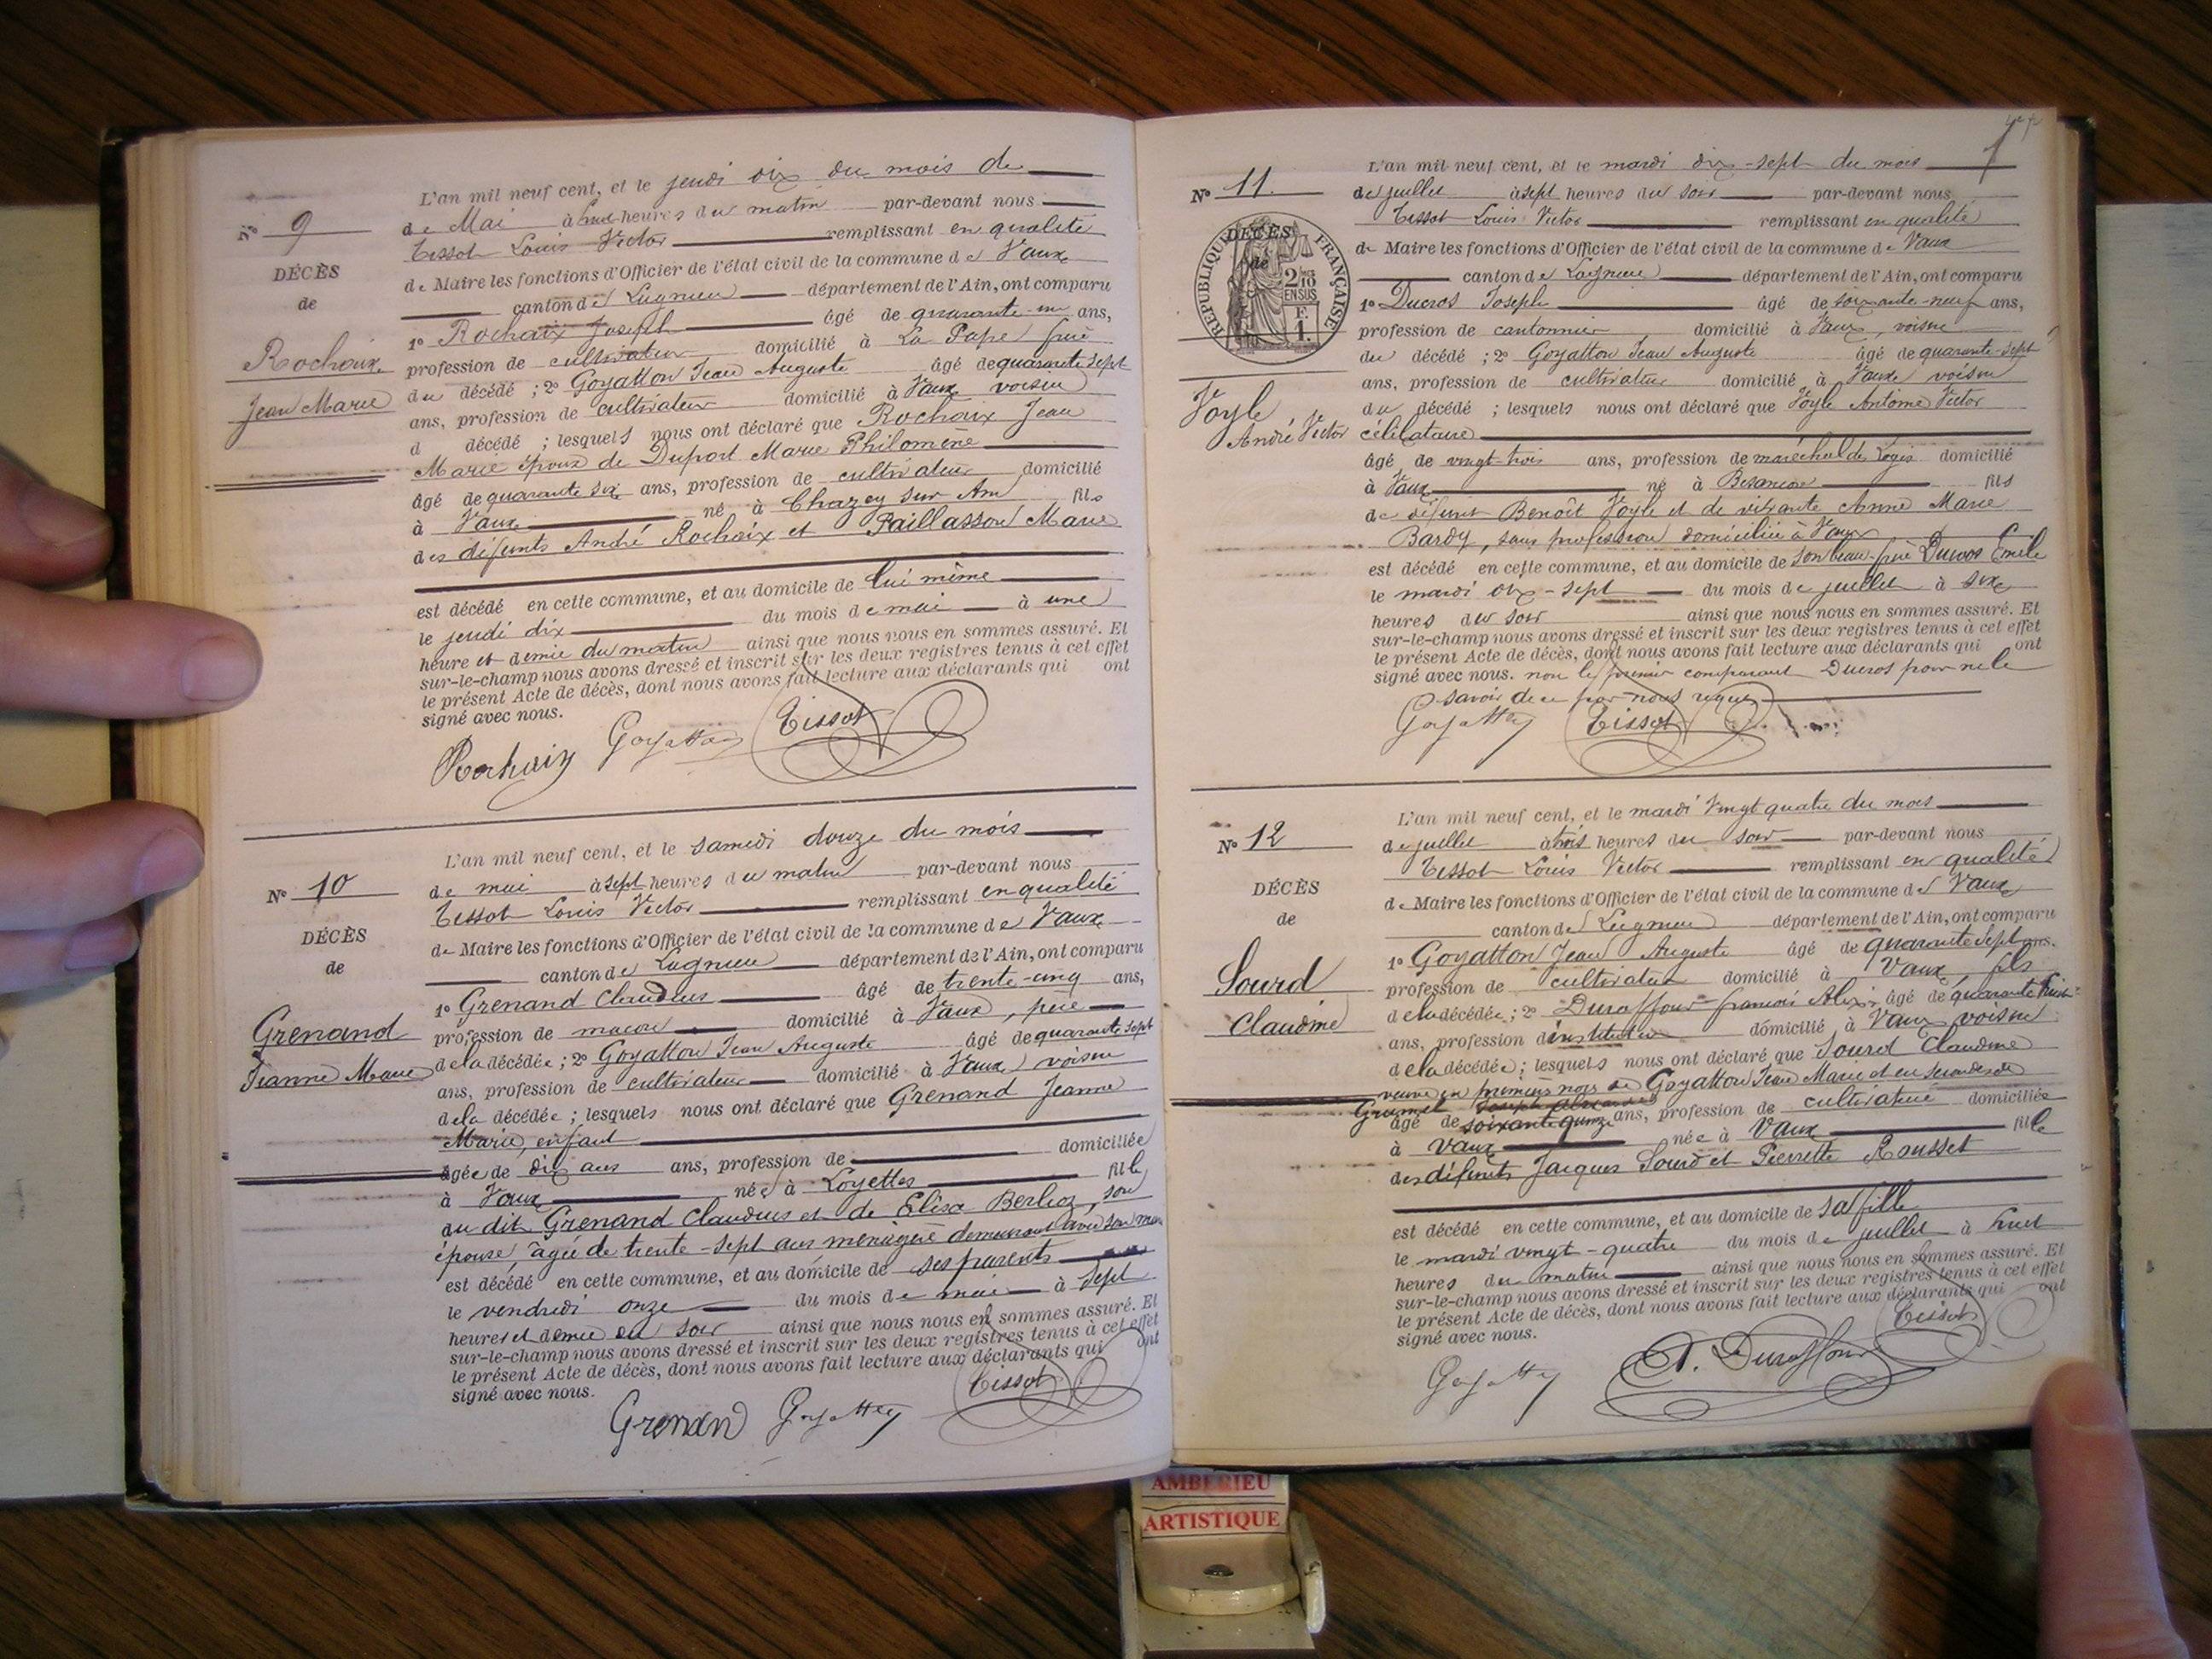 L'an mil neuf cent, et le jeudi dix du mois de
de Mai à huit heures du matin par-devant nous
Tissot Louis Victor remplissant en qualité
de Maire les fonctions d'Officier de l'état civil de la commune de Vaux
canton de Lagnieu département de l'Ain, ont comparu
1° Rochaix Joseph âgé de quarante-un ans,
profession de cultivateur domicilié à La Pape frère
du décédé ; 2° Goyatton Jean Auguste âgé de quarante sept
ans, profession de cultivateur domicilié à Vaux voisin
d décédé ; lesquels nous ont déclaré que Rochaix Jean
Marie époux de Duport Marie Philomène
âgé de quarante six ans, profession de cultivateur domicilié
à Vaux né à Chazey sur Ain fils
des défunts André Rochaix et Paillasson Marie
est décédé en cette commune, et au domicile de lui même
le jeudi dix du mois de mai à une
heure et demie du matin ainsi que nous nous en sommes assuré. Et
sur-le-champ nous avons dressé et inscrit sur les deux registres tenus à cet effet
le présent Acte de décès, dont nous avons fait lecture aux déclarants qui ont
signé avec nous.
Rochaix Goyatton Tissot
N° 9
DÉCÈS
de
Rochaix
Jean Marie
L'an mil neuf cent, et le samedi douze du mois
de mai à sept heures du matin par-devant nous
Tissot Louis Victor remplissant en qualité
de Maire les fonctions d'Officier de l'état civil de la commune de Vaux
canton de Lagnieu département de l'Ain, ont comparu
1° Grenand Claudius âgé de trente-cinq ans,
profession de maçon domicilié à Vaux, père
de la décédée ; 2° Goyatton Jean Auguste âgé de quarante sept
ans, profession de cultivateur domicilié à Vaux voisin
de la décédée ; lesquels nous ont déclaré que Grenand Jeanne
Marie, enfant
âgée de dix ans ans, profession de domiciliée
à Vaux née à Loyettes fille
du dit Grenand Claudius et de Elisa Berlioz, son
épouse, âgée de trente-sept ans ménagère demeurant avec son mari
est décédé en cette commune, et au domicile de ses parents
le vendredi onze du mois de mai à sept
heures et demie du soir ainsi que nous nous en sommes assuré. Et
sur-le-champ nous avons dressé et inscrit sur les deux registres tenus à cet effet
le présent Acte de décès, dont nous avons fait lecture aux déclarants qui ont
signé avec nous.
Grenand Goyatton Tissot
N° 10
DÉCÈS
de
Grenand
Jeanne Marie
L'an mil neuf cent, et le mardi dix-sept du mois
de juillet à sept heures du soir par-devant nous
Tissot Louis Victor remplissant en qualité
de Maire les fonctions d'Officier de l'état civil de la commune de Vaux
canton de Lagnieu département de l'Ain, ont comparu
1° Ducros Joseph âgé de soixante-neuf ans,
profession de cantonnier domicilié à Vaux, voisin
du décédé ; 2° Goyatton Jean Auguste âgé de quarante-sept
ans, profession de cultivateur domicilié à Vaux voisin
du décédé ; lesquels nous ont déclaré que Voyle Antoine Victor
célibataire
âgé de vingt-trois ans, profession de maréchal des Logis domicilié
à Vaux né à Besançon fils
de défunt Benoît Voyle et de vivante Anne Marie
Bardy, sans profession domiciliée à Vaux
est décédé en cette commune, et au domicile de son beau-frère Ducros Emile
le mardi dix-sept du mois de juillet à six
heures du soir ainsi que nous nous en sommes assuré. Et
sur-le-champ nous avons dressé et inscrit sur les deux registres tenus à cet effet
le présent Acte de décès, dont nous avons fait lecture aux déclarants qui ont
signé avec nous. non le premier comparant Ducros pour ne le
savoir de ce par nous requis
Goyatton Tissot
N° 11
RÉPUBLIQUE FRANÇAISE
DÉCÈS
de
2/10 EN SUS
F. 1.
Voyle
André Victor
L'an mil neuf cent, et le mardi vingt quatre du mois
de juillet à trois heures du soir par-devant nous
Tissot Louis Victor remplissant en qualité
de Maire les fonctions d'Officier de l'état civil de la commune de Vaux
canton de Lagnieu département de l'Ain, ont comparu
1° Goyatton Jean Auguste âgé de quarante sept ans.
profession de cultivateur domicilié à Vaux, fils
de la décédée ; 2° Duraffour françois Alexis âgé de quarante huit
ans, profession d'instituteur domicilié à Vaux voisin
de la décédée ; lesquels nous ont déclaré que Sourd Claudine
veuve en premières noces de Goyatton Jean Marie et en secondes de
âgé de soixante quinze ans, profession de cultivatrice domiciliée
à Vaux née à Vaux fille
des défunts Jacques Sourd et Pierrette Rousset
est décédé en cette commune, et au domicile de sa fille
le mardi vingt-quatre du mois de juillet à huit
heures du matin ainsi que nous nous en sommes assuré. Et
sur-le-champ nous avons dressé et inscrit sur les deux registres tenus à cet effet
le présent Acte de décès, dont nous avons fait lecture aux déclarants qui ont
signé avec nous.
Tissot
Goyatton A. Duraffour
N° 12
DÉCÈS
de
Sourd
Claudine
AMBERIEU
ARTISTIQUE